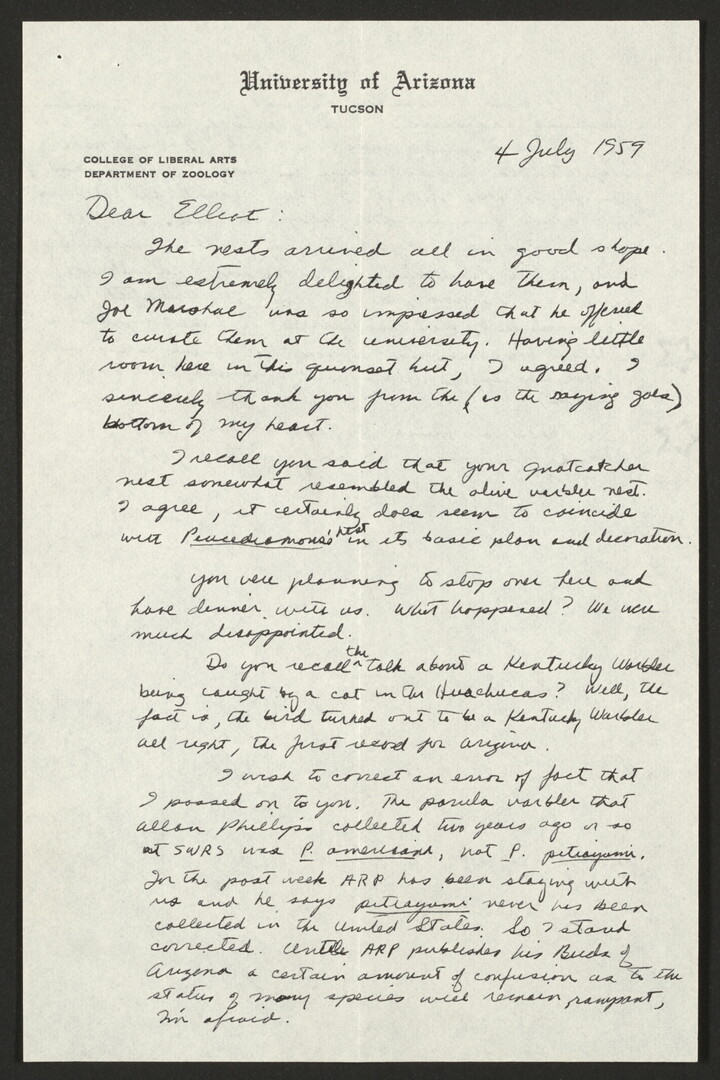 University of Arizona
TUCSON
COLLEGE OF LIBERAL ARTS
DEPARTMENT OF ZOOLOGY
4 July 1959
Dear Elliot:
The nests arrived all in good shape.
I am extremely delighted to have them, and
Joe Marshall was so impressed that he offered
to curate them at the university. Having little
room here in this quonset hut, I agreed. I
sincerely thank you from the (as the saying goes)
bottom of my heart.
I recall you said that your gnatcatcher
nest somewhat resembled the olive warbler nest.
I agree, it certainly does seem to coincide
with Peucedramus's nest in its basic plan and decoration.
You were planning to stop over here and
have dinner with us. What happened? We were
much disappointed.
Do you recall the talk about a Kentucky Warbler
being caught by a cat in the Huachucas? Well, the
fact is, the bird turned out to be a Kentucky Warbler
all right, the first record for Arizona.
I wish to correct an error of fact that
I passed on to you. The parula warbler that
Allan Phillips collected two years ago or so
at SWRS was P. americana, not P. pitiayumi.
For the past week ARP has been staying with
us and he says pitiayumi never has been
collected in the United States. So I stand
corrected. Until ARP publishes his Birds of
Arizona a certain amount of confusion as to the
status of many species will remain rampant,
I'm afraid.